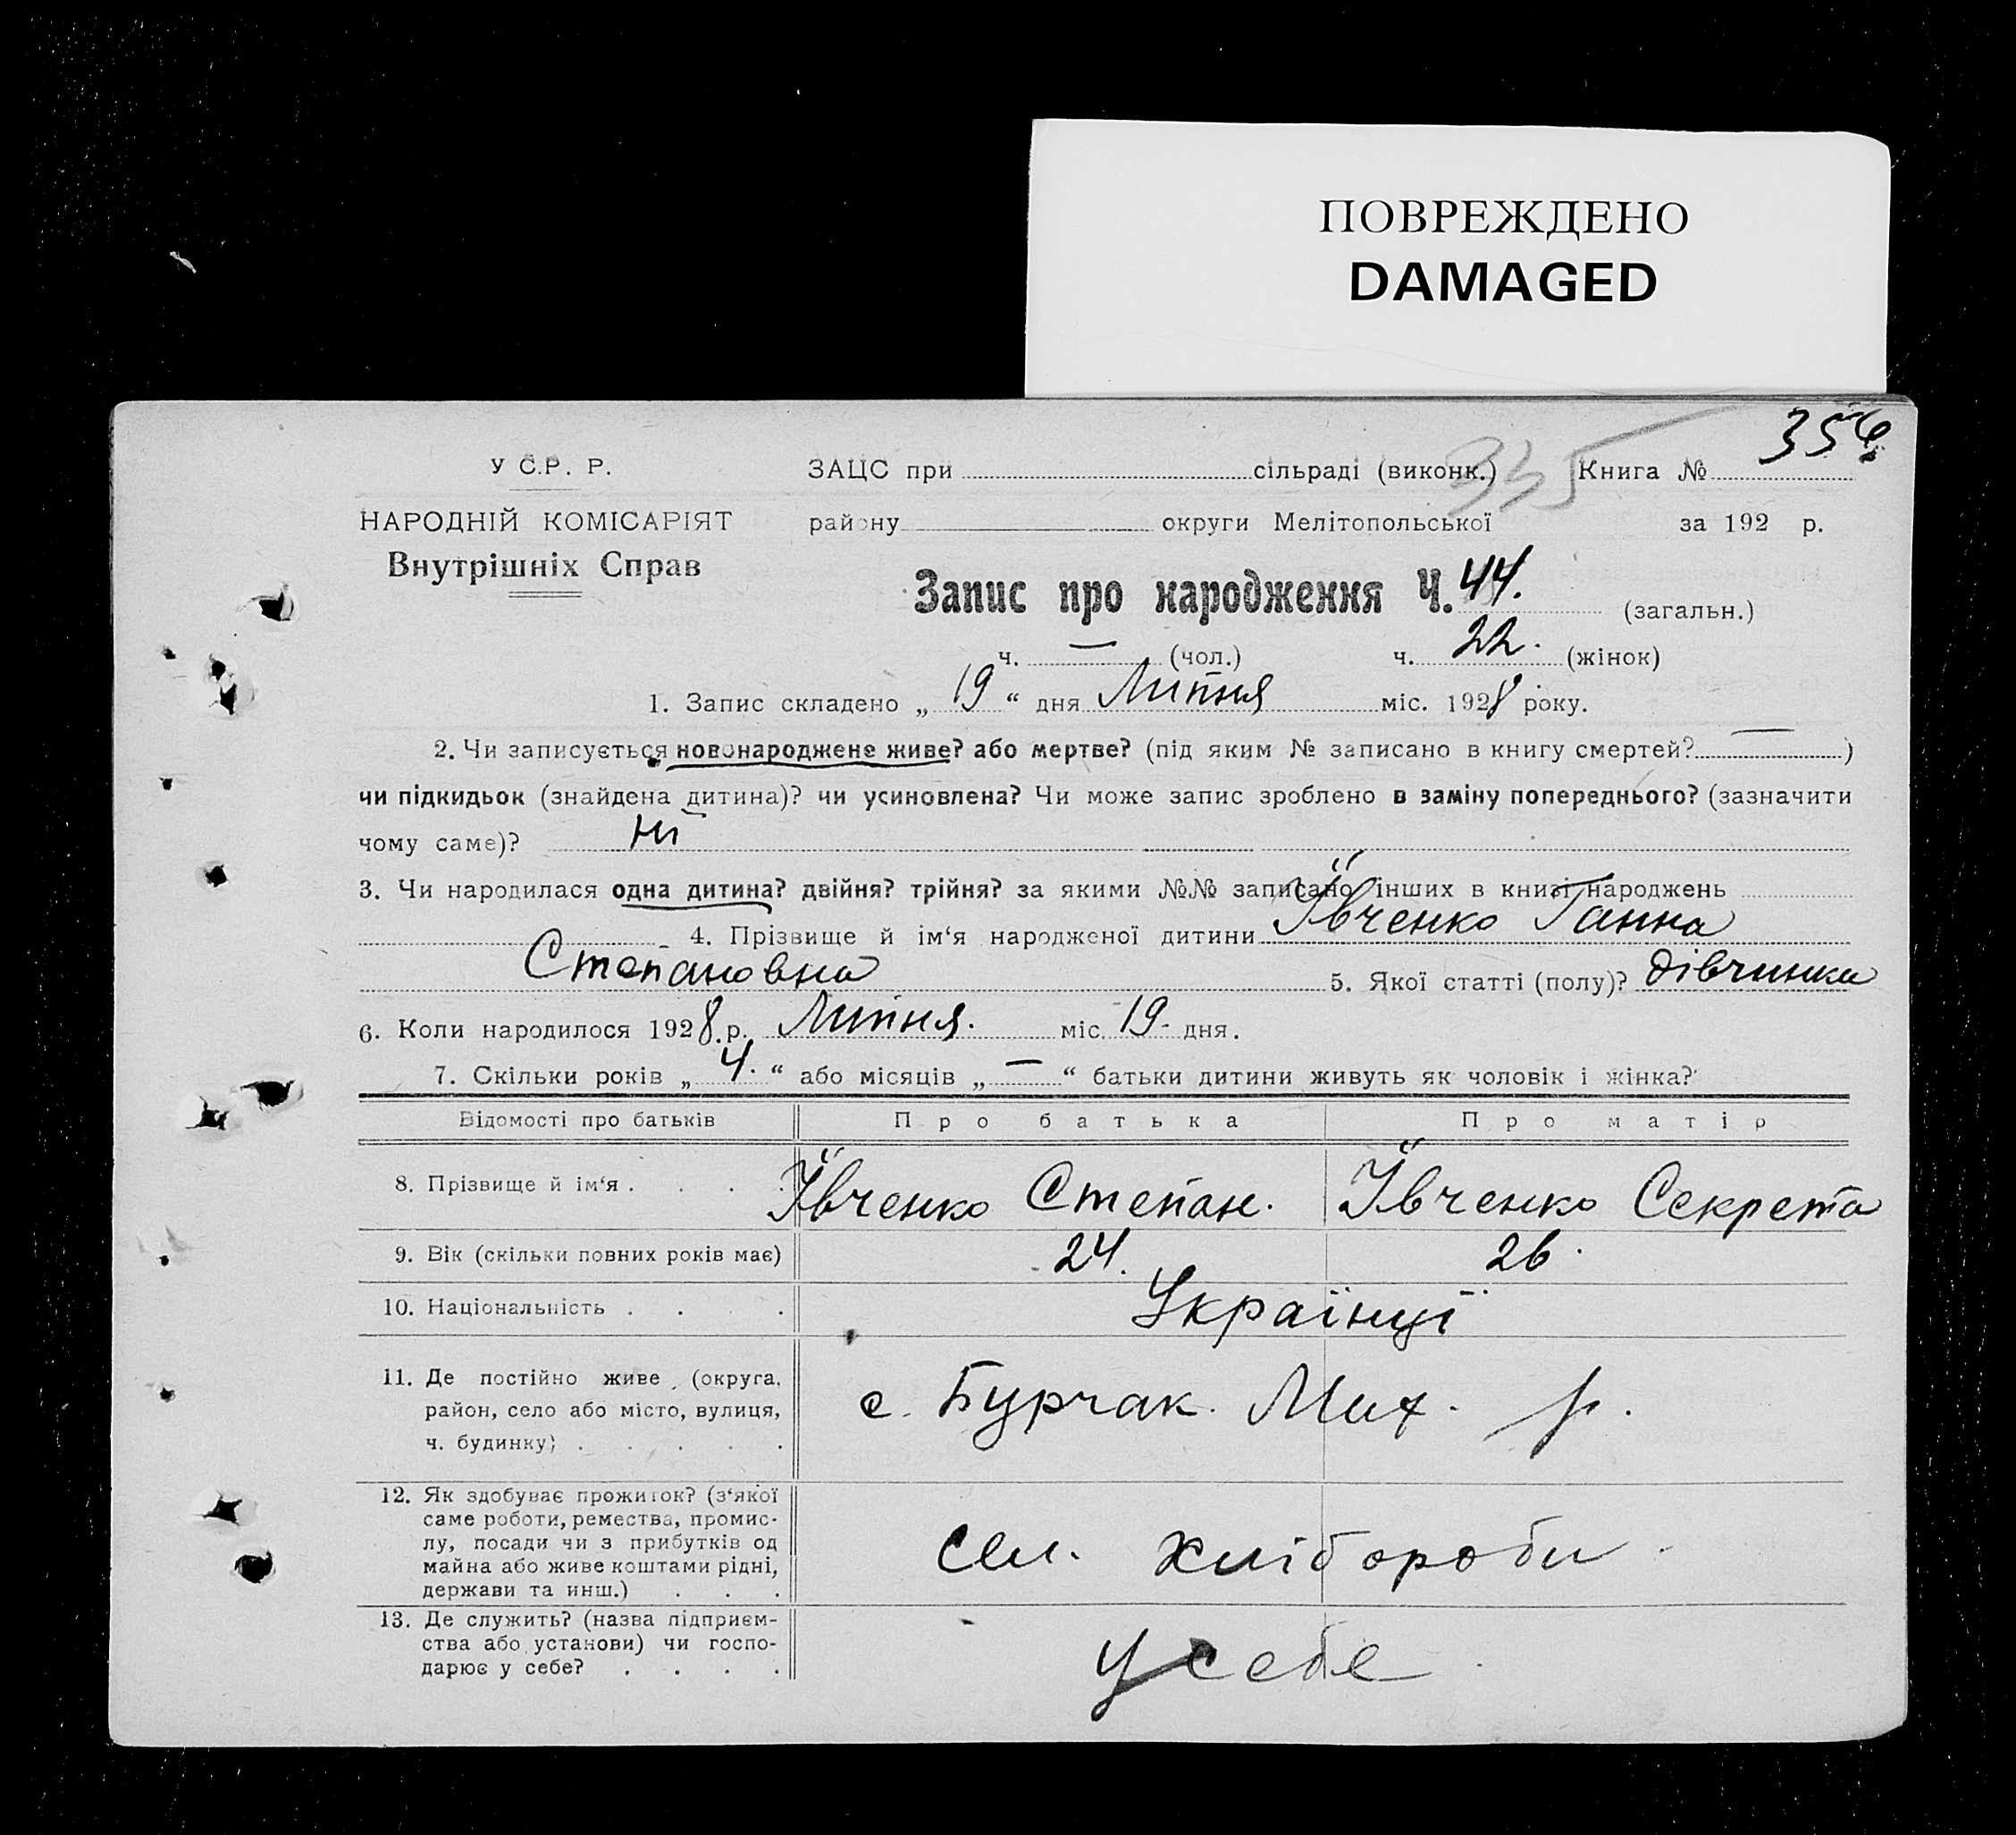 ПОВРЕЖДЕНО
DAMAGED
356
335
У С.Р. Р.
ЗАЦС при сільраді (виконк.) Книга №
НАРОДНІЙ КОМІСАРІЯТ
району округи Мелітопольської за 192 р.
Внутрішніх Справ
Запис про народження Ч. 44. (загальн.)
ч. — (чол.) ч. 22. (жінок)
1. Запис складено „ 19 “ дня Липня міс. 1928 року.
2. Чи записується новонароджене живе? або мертве? (під яким № записано в книгу смертей? — )
чи підкидьок (знайдена дитина)? чи усиновлена? Чи може запис зроблено в заміну попереднього? (зазначити
чому саме)? Ні
3. Чи народилася одна дитина? двійня? трійня? за якими №№ записано інших в книзі народжень
4. Прізвище й ім‘я народженої дитини Ївченко Ганна
Степановна 5. Якої статті (полу)? дівчинка
6. Коли народилося 1928 р. Липня. міс. 19. дня.
7. Скільки років „ 4. “ або місяців „ — “ батьки дитини живуть як чоловік і жінка?
Відомості про батьків Про батька Про матір
8. Прізвище й ім‘я . . . . Ївченко Степан. Ївченко Секрета
9. Вік (скільки повних років має) 24. 26.
10. Національність . . . . Українці
11. Де постійно живе (округа,
район, село або місто, вулиця,
ч. будинку) . . . . .
с. Бурчак. Мих. р.
12. Як здобуває прожиток? (з‘якої
саме роботи, ремества, промис-
лу, посади чи з прибутків од
майна або живе коштами рідні,
держави та инш.) . . .
сел. хлібороби.
13. Де служить? (назва підприєм-
ства або установи) чи госпо-
дарює у себе? . . . .
У себе